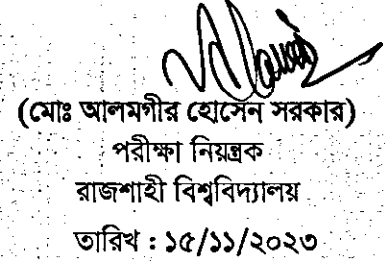 (মোঃ আলমগীর হোসেন সরকার)
পরীক্ষা নিয়ন্ত্রক
রাজশাহী বিশ্ববিদ্যালয়
তারিখ : ১৫/১১/২০২৩